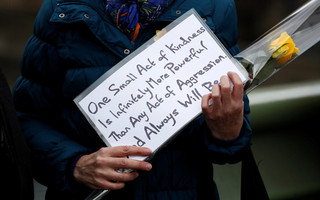 One Small Act of Kindness
Is Infinitely More Powerful
Than Any Act of Aggression
d Always Will